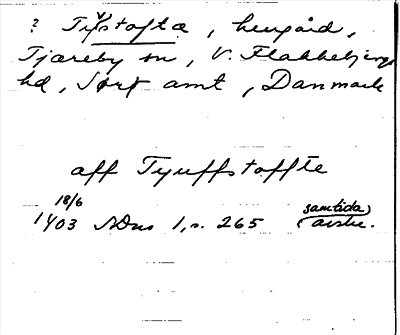 ? Tyvstofta, herrgård,
Tjæreby sn, V. Flakkebjergs
hd, Sorø amt, Danmark
aff Tyuffstoffte
18/6
1403 SDns 1, s. 265 (samtida
avskr.)